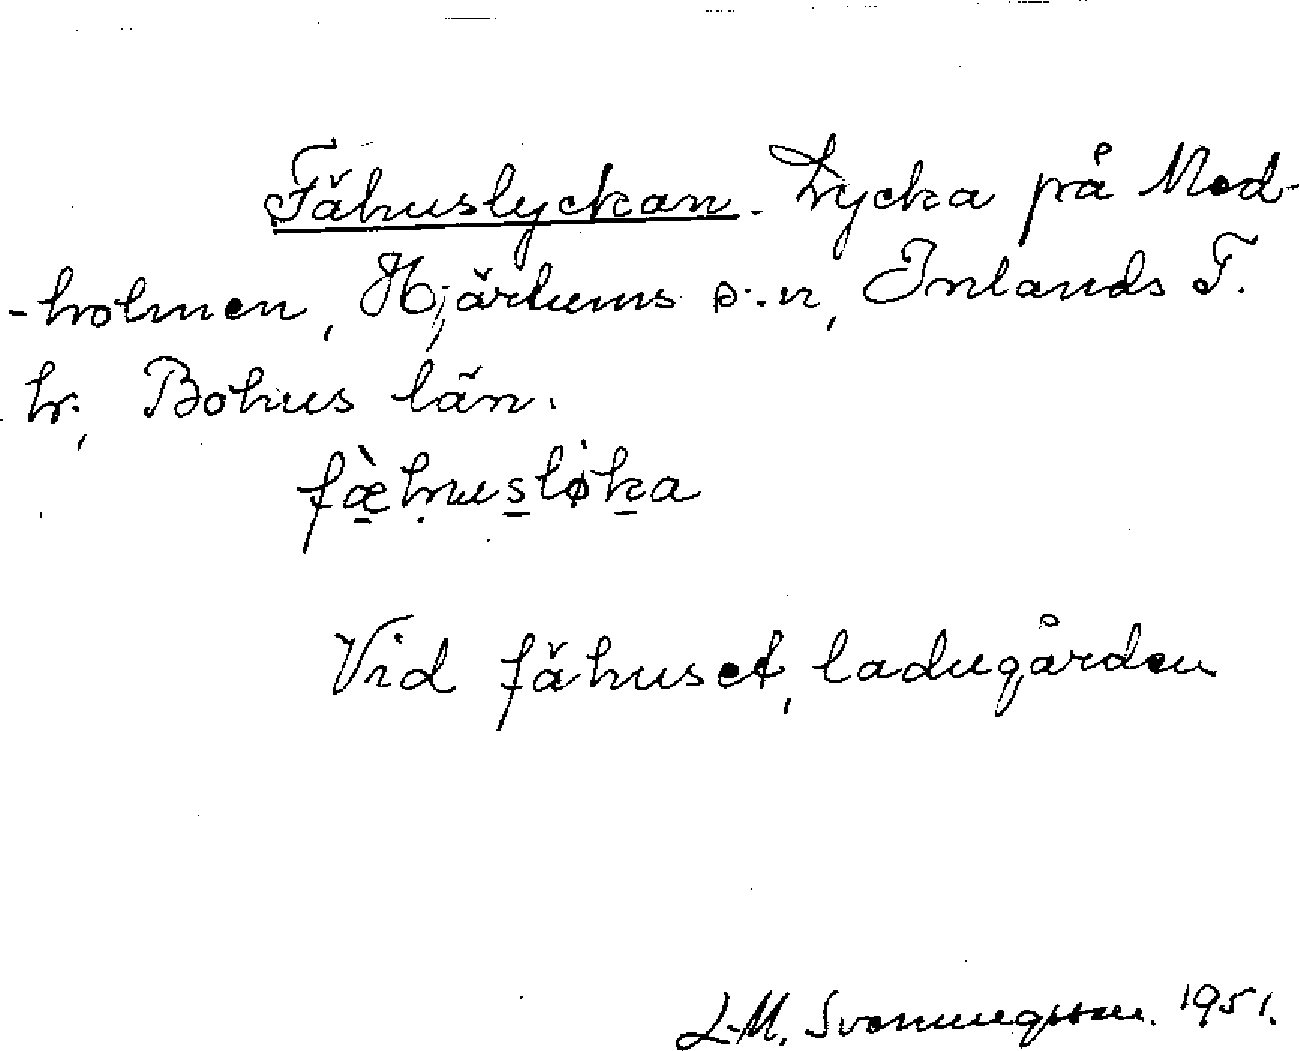 Fähuslyckan. Lycka på Med-
-holmen, Hjärtums s:n, Inlands T.
hr, Bohus län.
fæ̀husløka
Vid fähuset, ladugården
L-M. Svenungsson. 1951.